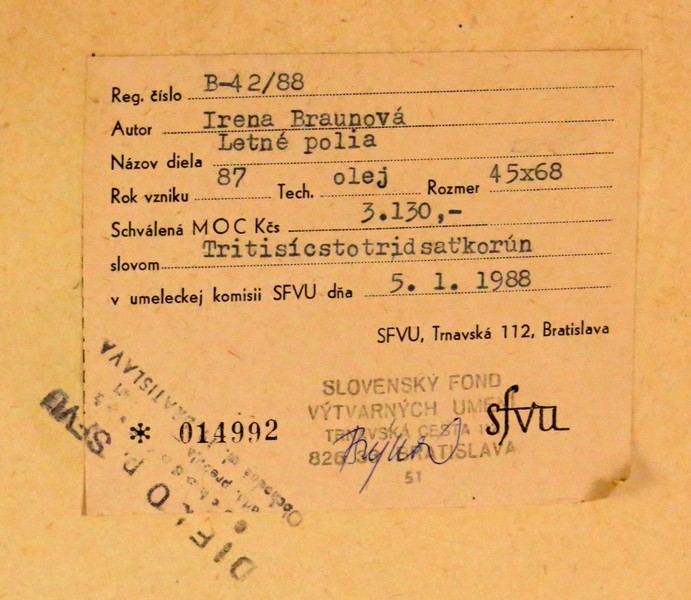 Reg. číslo B-42/88
Autor Irena Braunová
Názov diela Letné polia
Rok vzniku 87 Tech. olej Rozmer 45x68
Schválená MOC Kčs 3.130,-
slovom Tritisícstotridsaťkorún
v umeleckej komisii SFVU dňa 5. 1. 1988
SFVU, Trnavská 112, Bratislava
SLOVENSKÝ FOND
VÝTVARNÝCH UMENÍ
TRNAVSKÁ CESTA
BRATISLAVA
51
sfvu
* 014992
DIELO P. SFVU
BRATISLAVA